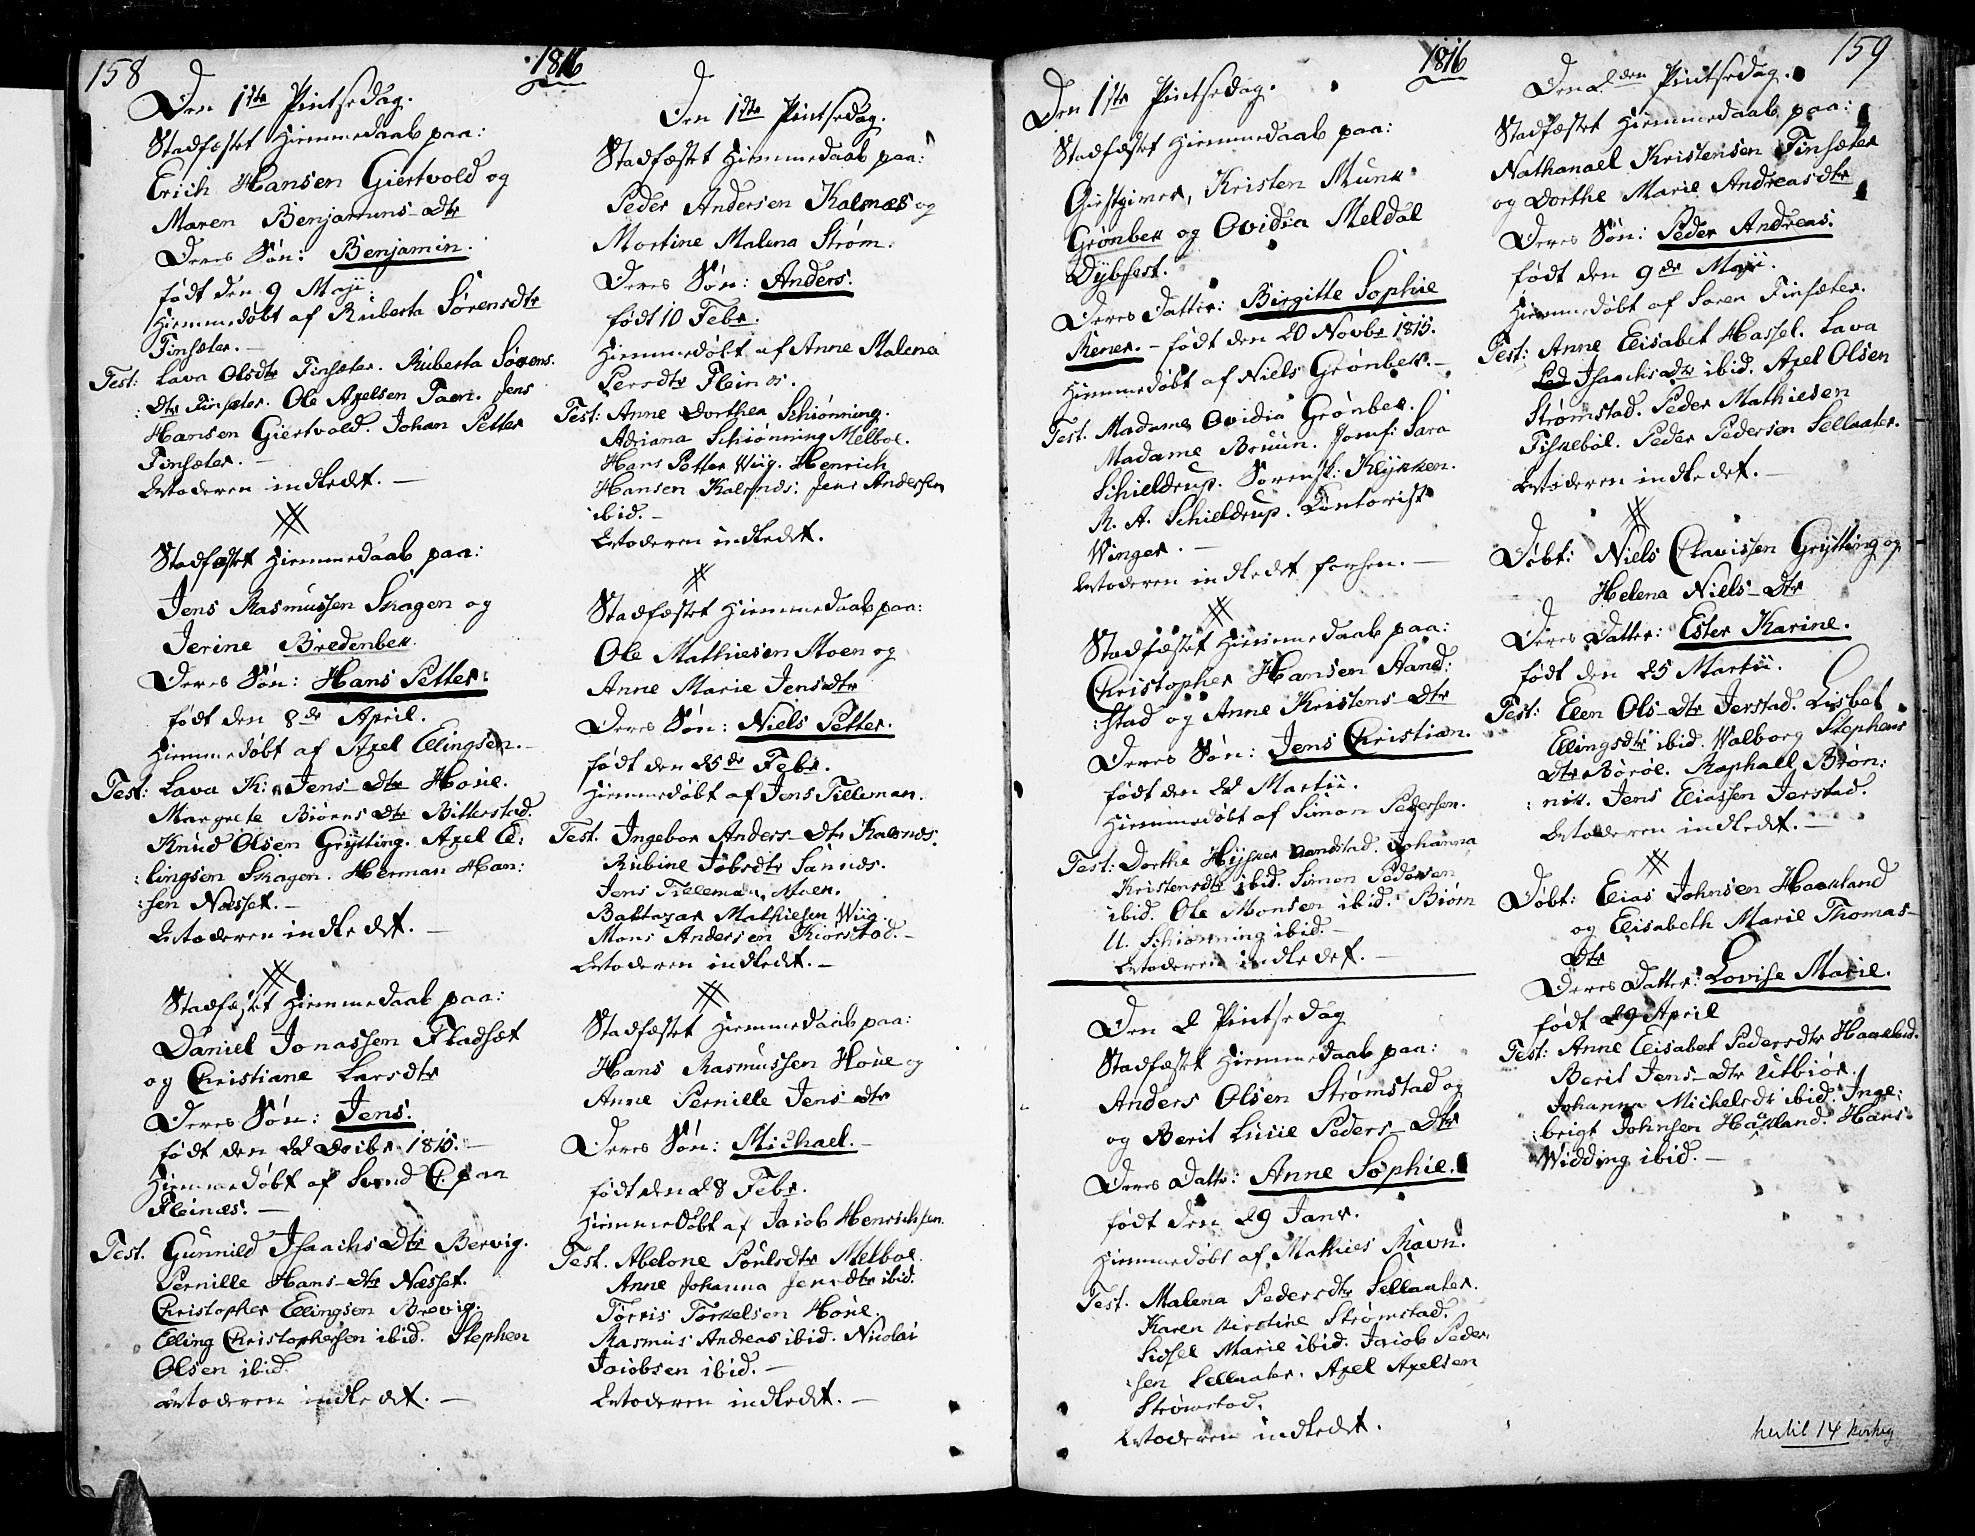 158
1816
Den 1ste Pintsedag.
Stadfæstet Hiemmedaab paa:
Erich Hansen Giertvold og
Maren Benjamins-Dtr
Deres Søn: Benjamin.
født den 9 Maji.
Hiemmedøbt af Ruberta Sørensdtr
Finsæter.
Test: Lava Olsdtr Finsæter. Ruberta Sørens:
:Dtr Finsæter. Ole Axelsen Faen. Jens
Hansen Giertvold. Johan Petter
Finsæter. –
Moderen indledet. –
Stadfæstet Hiemmedaab paa:
Jens Rasmussen Skagen og
Jerine Bredenbek.
Deres Søn: Hans Petter:
født den 8de April.
Hiemmedøbt af Axel Ellingsen. –
Test: Lava K: Jens-Dtr Houe.
Margrete Biørns Dtr Bitterstad.
Knud Olsen Grytting. Axel El:
:lingsen Skagen. Herman Han:
:sen Næsset. –
Moderen indledet. –
Stadfæstet Hiemmedaab paa:
Daniel Jonassen Fladsæt
og Christiane Larsdtr
Deres Søn: Jens.
født den 22 Decibr 1815. –
Hiemmedøbt af Svend C: paa
Fleinæs. –
Test. Gunnild Isaachs Dtr Bervig.
Pernille Hans-Dtr Næsset.
Christopher Ellingsen Brevig.
Elling Christophersen ibid. Stephen
Olsen ibid.
Moderen indledet. –
Den 1ste Pintsedag.
Stadfæstet Hiemmedaab paa:
Peder Andersen Kalsnæs og
Martine Malena Strøm.
Deres Søn: Anders.
født 10 Febr.
Hiemmedøbt af Anne Malena
Persdtr Fleinæs.
Test: Anne Dorthea Schiønning.
Adriana Schiønning Melboe.
Hans Petter Wiig. Henrich
Hansen Kalsnæs: Jens Andersen
ibid. –
Moderen indledet.
Stadfæstet Hiemmedaab paa:
Ole Mathiesen Moen og
Anne Marie Jensdtr
Deres Søn: Niels Petter.
født den 25de Febr.
Hiemmedøbt af Jens Tilleman.
Test. Ingebor Anders-Dtr Kalsnæs.
Rubine Jobsdtr Sannæs.
Jens Tilleman Moen.
Baltazar Mathiesen Wiig.
Mons Andersen Kiørstad. –
Moderen indledet. –
Stadfæstet Hiemmedaab paa:
Hans Rasmussen Houe og
Anne Pernille Jens-Dtr
Deres Søn: Michael. –
født den 28 Febr.
Hiemmedøbt af Jacob Henrichsen.
Test. Abelone Poulsdtr Melboe.
Anne Johanna Jensdtr ibid.
Torris Torkelsen Houe.
Rasmus Andreas ibid. Nicolai
Jacobsen ibid. –
Moderen indledet. –
1816
159
Den 1ste Pintsedag.
Stadfæstet Hiemmedaab paa:
Giestgiver, Kristen Munk
Grønbek og Ovidia Meldal
Dybfest.
Deres Datter: Birgitte Sophie
Rener. – født den 20 Novbr 1815.
Hiemmedøbt af Niels Grønbek. –
Test. Madame Ovidia Grønbek.
Madame Bruun. Jomf: Sara
Schieldrup. Sorensk: Klykken.
R. A. Schieldrup. Contorist
Winger. –
Moderen indledet forhen. –
Stadfæstet Hiemmedaab paa:
Christopher Hansen Aand:
:stad og Anne Kristens-Dtr
Deres Søn: Jens Christian.
født den 22 Martii.
Hiemmedøbt af Simon Pedersen.
Test: Dorthe Aandstad. Johanna
Kristensdtr ibid. Simon Pedersen
ibid. Ole Monsen ibid. Biørn
U. Schiønning ibid. –
Moderen indledet. –
Den 2 Pintsedag
Stadfæstet Hiemmedaab paa:
Anders Olsen Strømstad og
og Berit Lucie Peders-Dtr
Deres Dattr: Anne Sophie.
født den 29 Janr.
Hiemmedøbt af Mathies Ravn.
Test. Malena Pedersdtr Sellaater.
Karen Kirstine Strømstad.
Sidsel Marie ibid. Jacob Peder:
:sen Sellaater. Axel Axelsen
Strømstad.
Moderen indledet.
Den 2den Pintsedag.
Stadfæstet Hiemmedaab paa:
Nathanael Kristensen Finsæter
og Dorthe Marie Andreasdtr
Deres Søn: Peder Andreas.
født den 9de Maji.
Hiemmedøbt af Soren Finsæter.
Test: Anne Elisabet Hassel. Lava
Isachs Dtr ibid. Axel Olsen
Strømstad. Peder Mathiesen
Fiskebøl. Peder Pedersen Sellaater.
Moderen indledet. –
Døbt: Niels Clavissen Grytting og
Helena Niels-Dtr
Deres Datter: Ester Karine.
født den 25 Martii.
Test: Elen Ols-Dtr Jerstad. Lisbet
Ellingsdtr ibid. Walborg Stephens
Dtr Børøe. Raphael Brøn:
:nik. Jens Eliassen Jerstad.
Moderen indledet. –
Døbt: Elias Johnsen Haakland
og Elisabeth Marie Thomas-
Dtr
Deres Datter: Lovise Marie.
født 29 April
Test: Anne Elisabet Pedersdtr Haakland.
Berit Jens-Dtr Utbiør.
Johanna Michelsdt ibid. Inge:
:brigt Johnsen Haakland. Hans
Widding ibid. –
hertil 14